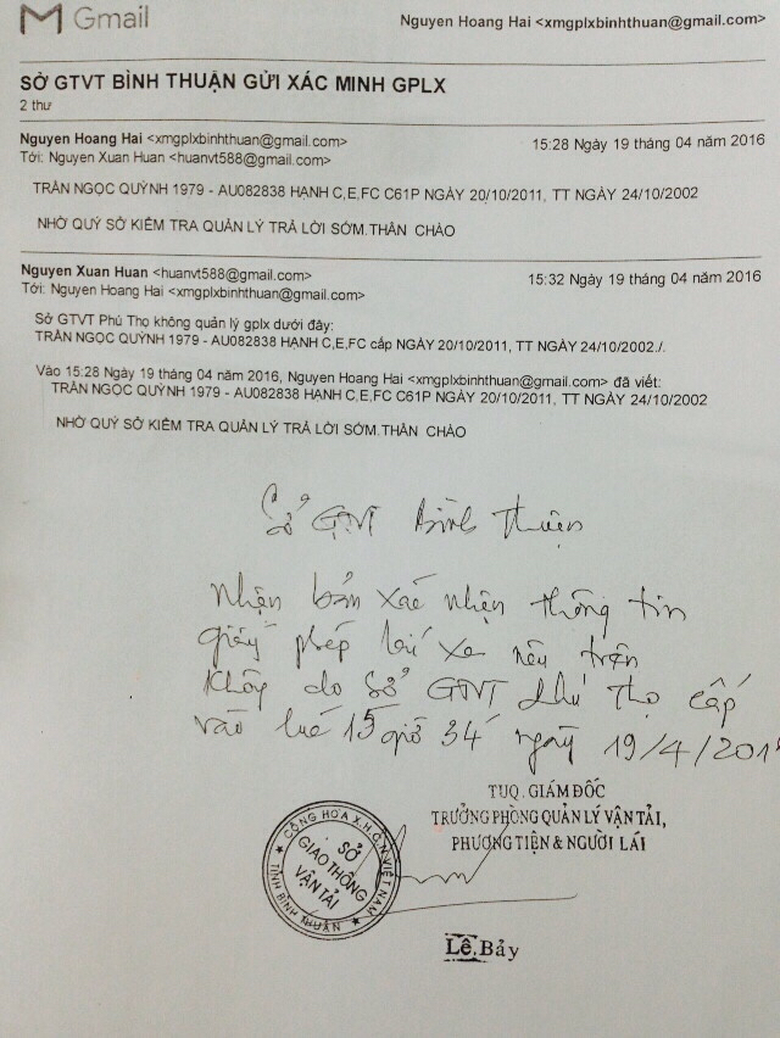 Gmail
Nguyen Hoang Hai <xmgplxbinhthuan@gmail.com>
SỞ GTVT BÌNH THUẬN GỬI XÁC MINH GPLX
2 thư
Nguyen Hoang Hai <xmgplxbinhthuan@gmail.com> 15:28 Ngày 19 tháng 04 năm 2016
Tới: Nguyen Xuan Huan <huanvt588@gmail.com>
TRẦN NGỌC QUỲNH 1979 - AU082838 HẠNH C,E,FC C61P NGÀY 20/10/2011, TT NGÀY 24/10/2002
NHỜ QUÝ SỞ KIỂM TRA QUẢN LÝ TRẢ LỜI SỚM.THÂN CHÀO
Nguyen Xuan Huan <huanvt588@gmail.com> 15:32 Ngày 19 tháng 04 năm 2016
Tới: Nguyen Hoang Hai <xmgplxbinhthuan@gmail.com>
Sở GTVT Phú Thọ không quản lý gplx dưới đây:
TRẦN NGỌC QUỲNH 1979 - AU082838 HẠNH C,E,FC cấp NGÀY 20/10/2011, TT NGÀY 24/10/2002./.
Vào 15:28 Ngày 19 tháng 04 năm 2016, Nguyen Hoang Hai <xmgplxbinhthuan@gmail.com> đã viết:
TRẦN NGỌC QUỲNH 1979 - AU082838 HẠNH C,E,FC C61P NGÀY 20/10/2011, TT NGÀY 24/10/2002
NHỜ QUÝ SỞ KIỂM TRA QUẢN LÝ TRẢ LỜI SỚM.THÂN CHÀO
Sở GTVT Bình Thuận
Nhận bản xác nhận thông tin
giấy phép lái xe nêu trên
không do Sở GTVT Phú Thọ cấp
vào lúc 15 giờ 34 ngày 19/4/201
TUQ. GIÁM ĐỐC
TRƯỞNG PHÒNG QUẢN LÝ VẬN TẢI,
PHƯƠNG TIỆN & NGƯỜI LÁI
CỘNG HÒA X.H.C.N VIỆT NAM
SỞ
GIAO THÔNG
VẬN TẢI
TỈNH BÌNH THUẬN
Lê Bảy